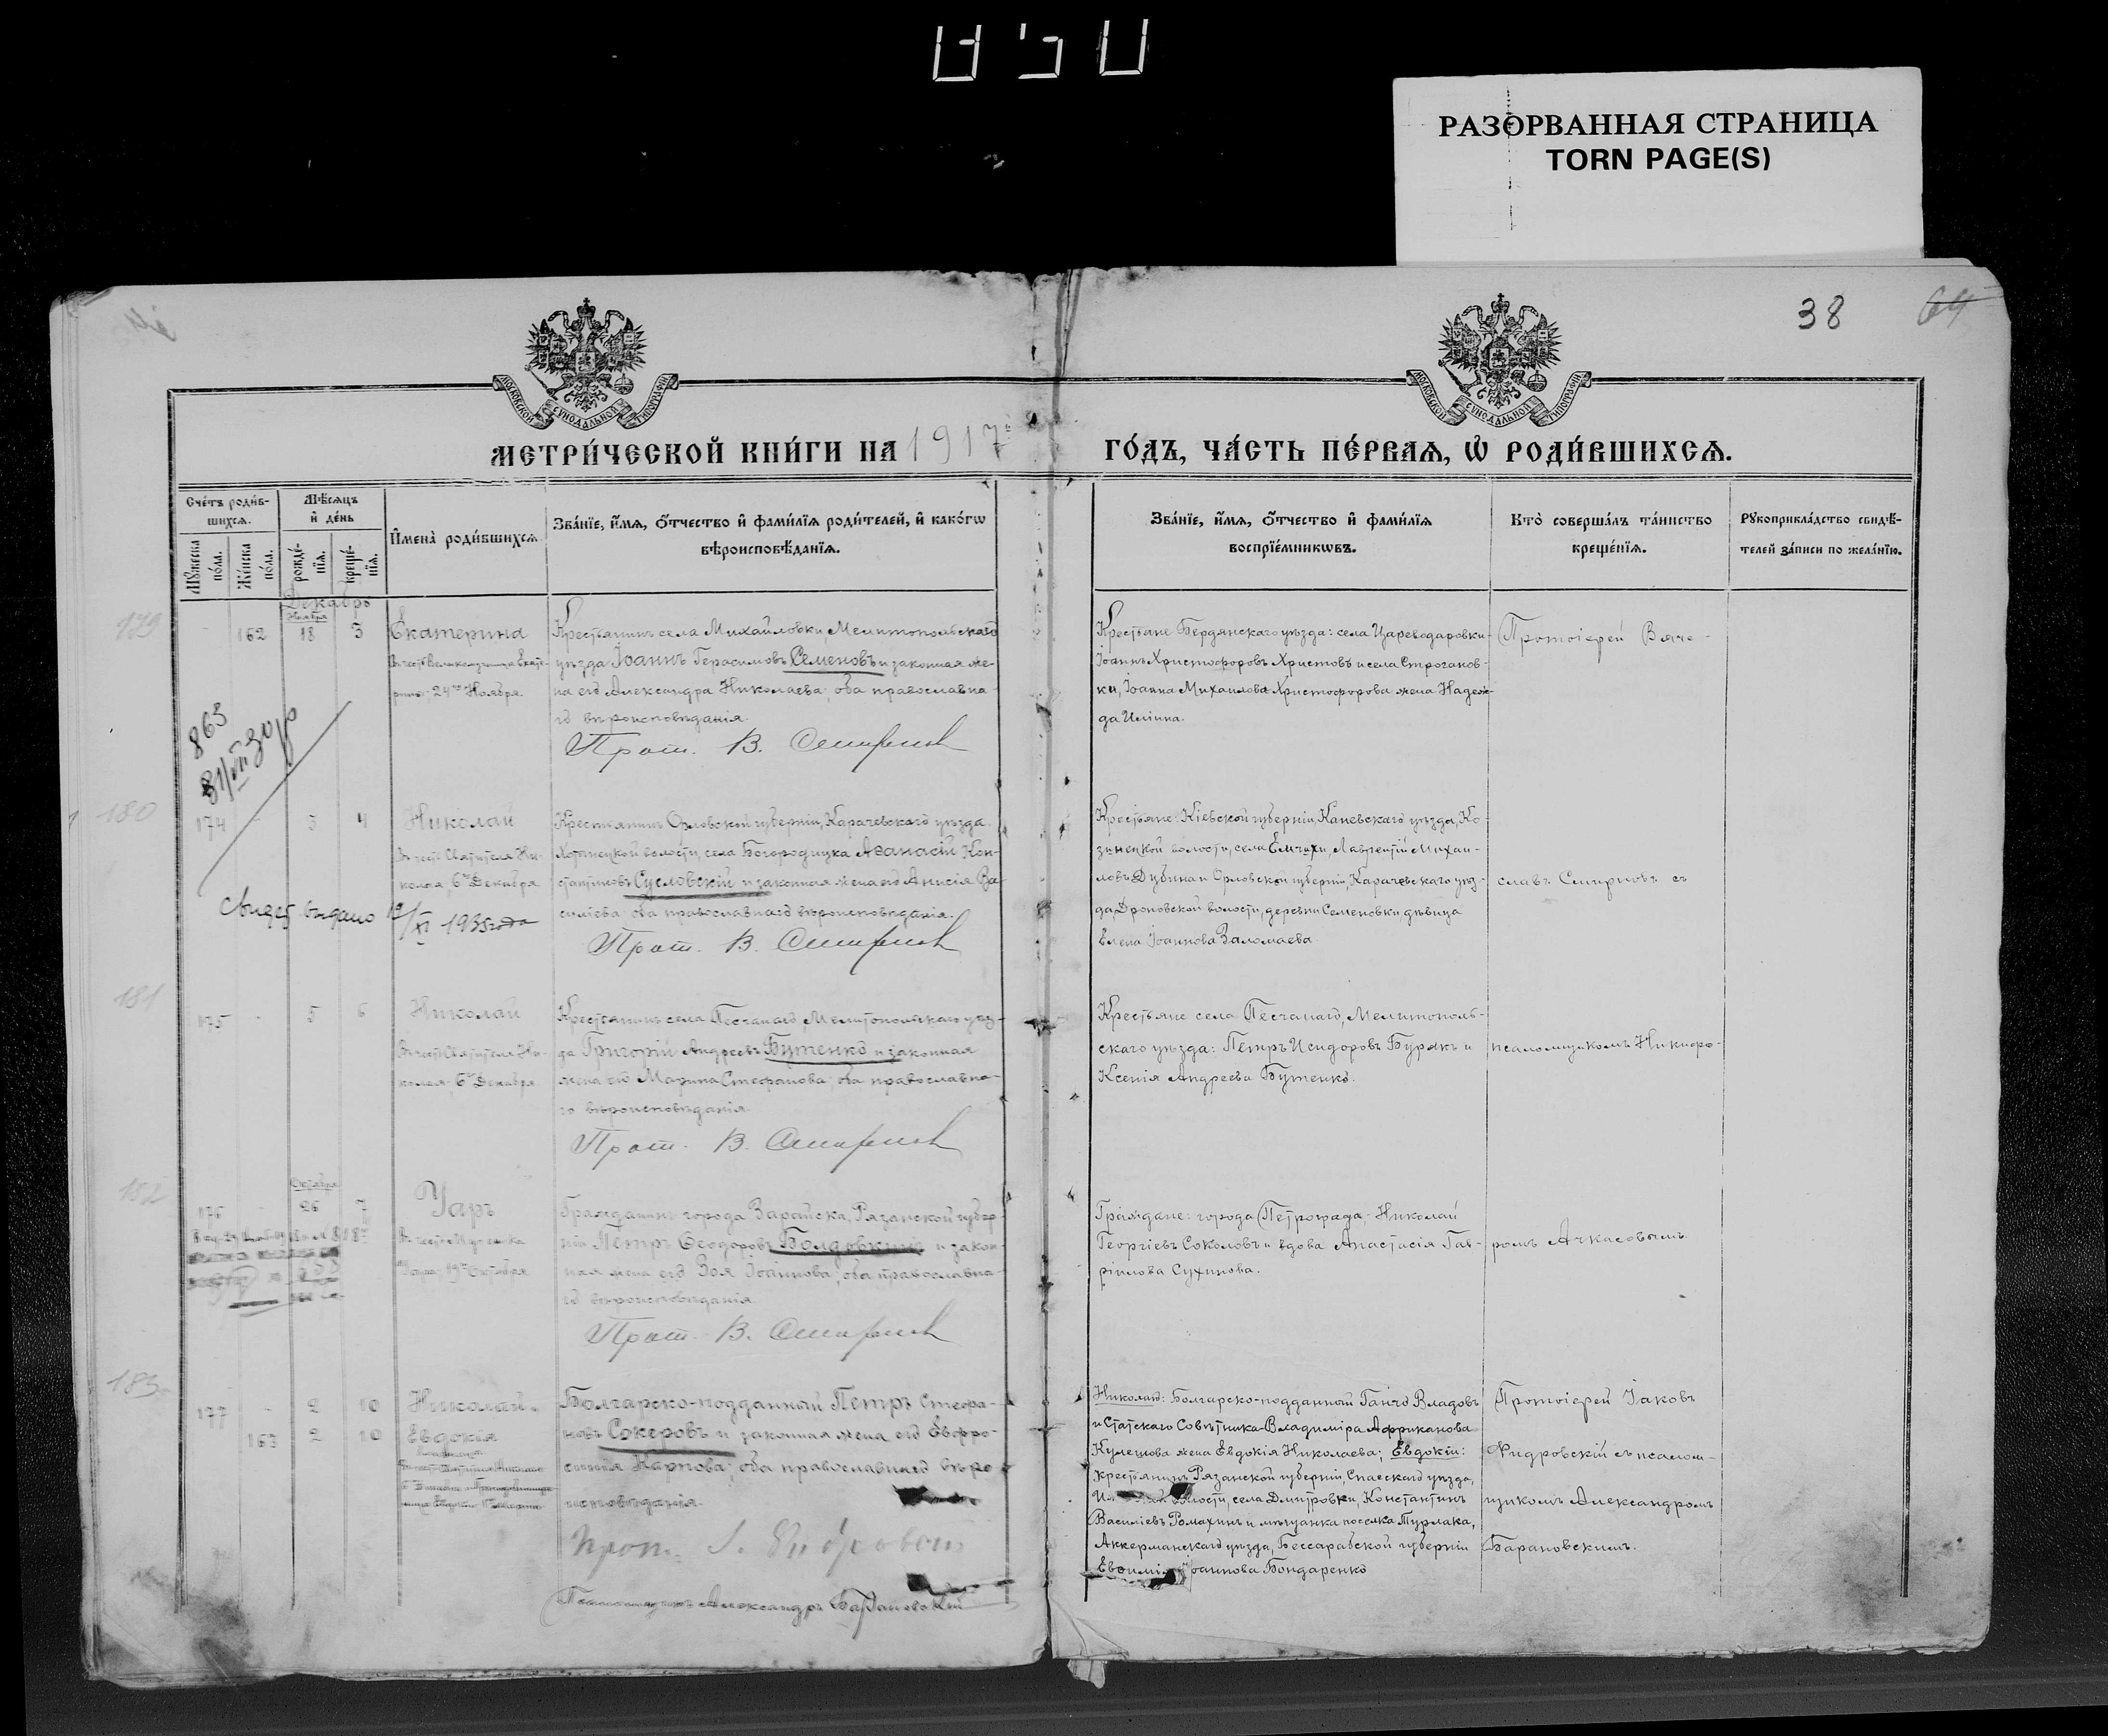 РАЗОРВАННАЯ СТРАНИЦА
TORN PAGE(S)
38
64
МОСКОВСКОЙ СУНОДАЛЬНОЙ ТИПОГРАФІИ
МОСКОВСКОЙ СУНОДАЛЬНОЙ ТИПОГРАФІИ
МЕТРИ́ЧЕСКОЙ КНИ́ГИ НА 1917
ГО́ДЪ, ЧА́СТЬ ПЕ́РВАѦ, Ѡ РОДИ́ВШИХСѦ.
Сче́тъ роди́в-
шихсѧ.
Мѣ́сѧцъ
и де́нь
Мꙋ́жеска
по́ла.
Же́нска
по́ла.
рожде́-
нїѧ.
креще́-
нїѧ.
И҆мена̀ роди́вшихсѧ
Зва́нїе, и҆́мѧ, ѻ҆́тчество и҆ фами́лїѧ роди́телей, и҆ како́гѡ
вѣроисповѣ́данїѧ.
Зва́нїе, и҆́мѧ, ѻ҆́тчество и҆ фами́лїѧ
воспрїе́мникѡвъ.
Кто̀ соверша́лъ та́инство
креще́нїѧ.
Рꙋкоприкла́дство свидѣ́-
телей за́писи по жела́нїю.
Декабрь
Ноября
179
162 18 3 Екатерина
24го Ноября
Крестьянинъ села Михайловки Мелитопольскаго
уѣзда Іоаннъ Герасимовъ Семеновъ и законная же-
на его Александра Николаева; оба православна-
го вѣроисповѣданія.
Прот. В. Смирновъ
Крестьяне Бердянскаго уѣзда: села Цареводаровки-
Іоаннъ Христофоровъ Христовъ и села Строганов-
ки, Іоанна Михаилова Христофорова жена Надеж-
да Иліина.
Протоіерей Вяче-
863
31/VII 30
180
174 - 3 4 Николай
Въ честь Святителя Ни-
колая, 6го Декабря
Свидет выдано 19/XI 1935 года
Крестьянинъ Орловской губерніи, Карачевскаго уѣзда.
Хотынецкой волости, села Богородицка Аѳанасій Кон-
стантиновъ Сусловскій и законная жена его Анисія Ва-
силіева; оба православнаго вѣроисповѣданія.
Прот. В. Смирновъ
Крестьяне: Кіевской губерніи, Каневскаго уѣзда, Ко-
зинецкой волости, села Емчихи, Лаврентій Михаи-
ловъ Дубина и Орловской губерніи, Карачевскаго уѣз-
да, Дроновской волости, деревни Семеновки, дѣвица
Елена Іоаннова Заломаева
славъ Смирновъ съ
181
175 - 5 6 Николай
Въ честь Святителя Ни-
колая, 6го Декабря
Крестьянинъ села Песчанаго, Мелитопольскаго уѣз-
да Григорій Андреевъ Бутенко и законная
жена его Марина Стефанова; оба православна-
го вѣроисповѣданія.
Прот. В. Смирновъ
Крестьяне села Песчанаго, Мелитополь-
скаго уѣзда: Петръ Исидоровъ Бурякъ и
Ксенія Андреева Бутенко.
псаломщикомъ Никифо-
182
Октября
176 - 26 7 Уаръ
Въ честь Мученика
Уара, 19го Октября
Гражданинъ города Зарайска, Рязанской губер-
ніи Петръ Ѳеодоровъ Болдовкинъ и закон-
ная жена его Зоя Іоаннова; оба православна-
го вѣроисповѣданія.
Прот. В. Смирновъ
Граждане: города Петрограда, Николай
Георгіевъ Соколовъ и вдова Анастасія Гав-
ріилова Сухинова.
ромъ Ачкасовымъ.
183
177 - 2 10 Николай.
163 2 10 Евдокія
Болгарско-подданный Петръ Стефа-
новъ Сокеровъ и законная жена его Евфро-
синія Карпова; оба православнаго вѣро
исповѣданія.
Прот. І.
Псаломщикъ Александръ Барановскій
Николаю: Болгарско-подданный Ганчо Владовъ
и Статскаго Совѣтника Владиміра Африканова
Кулешова жена Евдокія Николаева; Евдокіи:
крестьянинъ Рязанской губерніи, Спасскаго уѣзда,
волости, села Дмитровки, Константинъ
Василіевъ Ромахинъ и мѣщанка поселка Турлака,
Аккерманскаго уѣзда, Бессарабской губерніи
Евѳимія Іоаннова Бондаренко
Протоіерей Іаковъ
съ псалом-
щикомъ Александромъ
Барановскимъ.